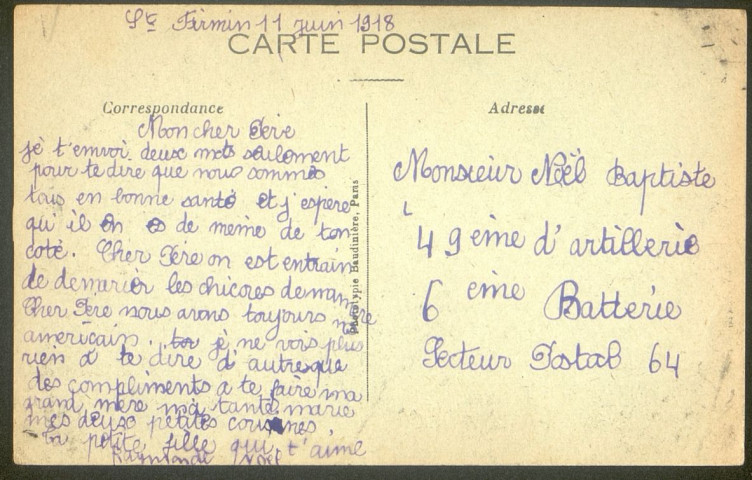 Ste Firmin 11 juin 1918
CARTE POSTALE
Correspondance
Mon cher Père
je t'envoi deux mots seulement
pour te dire que nous sommes
tous en bonne santé et j'espère
qu'il en es de meme de ton
coté. Cher Père on est entrain
de demarier les chicores demam
Cher Père nous avons toujours notre
americain. je ne vois plus
rien a te dire d'autre que
des compliments a te faire ma
grand mère ma tante marie
mes deux petites cousines.
ta petite fille qui t'aime
Raymonde Noël
Phototypie Baudinière, Paris
Adresse
Monsieur Noël Baptiste
49 eme d'artillerie
6 eme Batterie
Secteur Postal 64